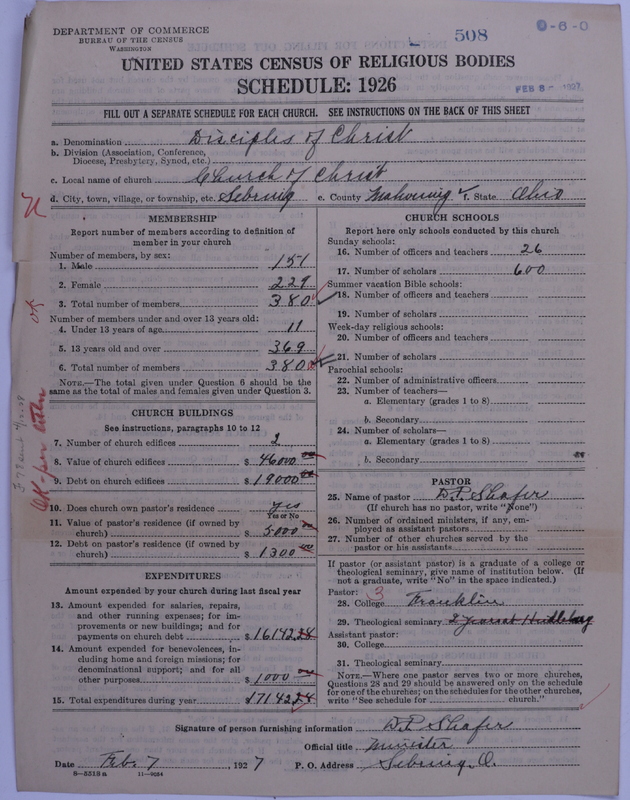 DEPARTMENT OF COMMERCE
BUREAU OF THE CENSUS
WASHINGTON
508
0-6-0
UNITED STATES CENSUS OF RELIGIOUS BODIES
SCHEDULE: 1926
FEB 8 - 1927
FILL OUT A SEPARATE SCHEDULE FOR EACH CHURCH. SEE INSTRUCTIONS ON THE BACK OF THIS SHEET
a. Denomination Disciples of Christ
b. Division (Association, Conference, Diocese, Presbytery, Synod, etc.)
c. Local name of church Church of Christ
d. City, town, village, or township, etc. Sebring e. County Mahoning f. State Ohio
MEMBERSHIP
Report number of members according to definition of
member in your church
Number of members, by sex:
1. Male 151
2. Female 229
3. Total number of members 380
Number of members under and over 13 years old:
4. Under 13 years of age 11
5. 13 years old and over 369
6. Total number of members 380
NOTE.—The total given under Question 6 should be the
same as the total of males and females given under Question 3.
CHURCH BUILDINGS
See instructions, paragraphs 10 to 12
7. Number of church edifices 2
8. Value of church edifices $ 46000 00
9. Debt on church edifices $ 19000 00
10. Does church own pastor's residence? yes
Yes or No
11. Value of pastor's residence (if owned by
church) $ 5000 00
12. Debt on pastor's residence (if owned by
church) $ 1300 00
EXPENDITURES
Amount expended by your church during last fiscal year
13. Amount expended for salaries, repairs,
and other running expenses; for im-
provements or new buildings; and for
payments on church debt $ 16142.24
14. Amount expended for benevolences, in-
cluding home and foreign missions; for
denominational support; and for all
other purposes $ 1000 00
15. Total expenditures during year $ 17142.24
CHURCH SCHOOLS
Report here only schools conducted by this church
Sunday schools:
16. Number of officers and teachers 26
17. Number of scholars 600
Summer vacation Bible schools:
18. Number of officers and teachers
19. Number of scholars
Week-day religious schools:
20. Number of officers and teachers
21. Number of scholars
Parochial schools:
22. Number of administrative officers
23. Number of teachers—
a. Elementary (grades 1 to 8)
b. Secondary
24. Number of scholars—
a. Elementary (grades 1 to 8)
b. Secondary
PASTOR
25. Name of pastor D.P. Shafer
(If church has no pastor, write "None")
26. Number of ordained ministers, if any, em-
ployed as assistant pastors
27. Number of other churches served by the
pastor or his assistants
If pastor (or assistant pastor) is a graduate of a college or
theological seminary, give name of institution below. (If
not a graduate, write "No" in the space indicated.)
Pastor: 3
28. College Franklin
29. Theological seminary 2 years at
Assistant pastor:
30. College
31. Theological seminary
NOTE.—Where one pastor serves two or more churches,
Questions 28 and 29 should be answered only on the schedule
for one of the churches; on the schedules for the other churches,
write "See schedule for church."
Signature of person furnishing information D.P. Shafer
Official title Minister
Date Feb. 7, 1927 P. O. Address Sebring, O.
8—5518 a 11—9034